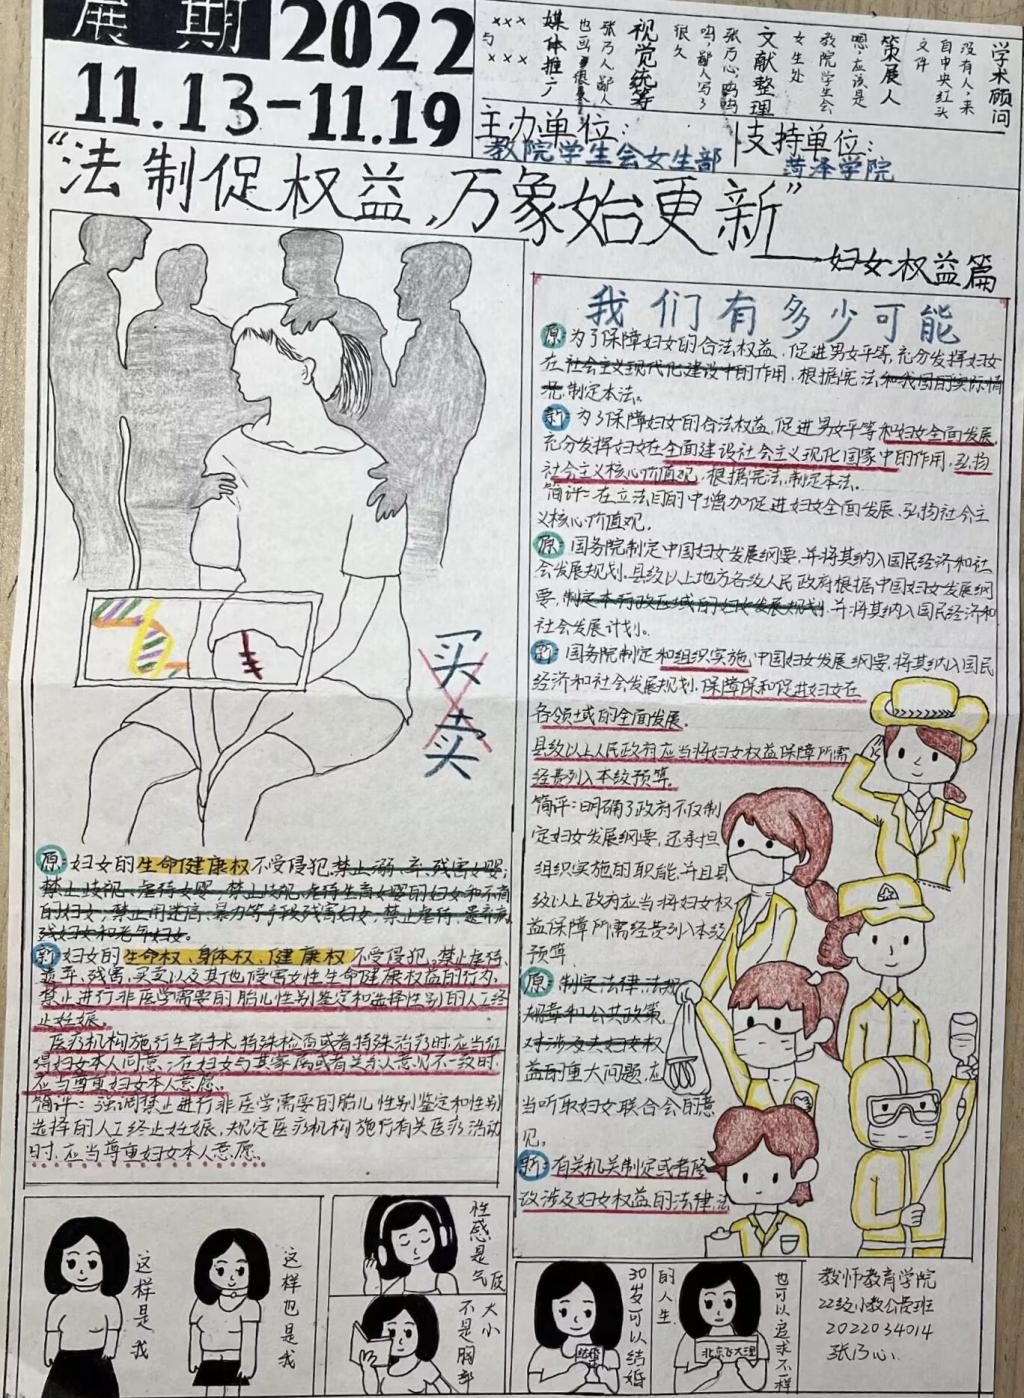 展期 2022
11.13-11.19
学术顾问
没有人：来
自中央红头
文件
策展人
嗯：应该是
教院学生会
女生处
文献整理
张乃心呜呜
呜，鄙人写了
很久
视觉统筹
张乃人鄙人
媒体推广
×××
与
×××
主办单位：
教院学生会女生部
支持单位：
菏泽学院
“法制促权益，万象始更新”
——妇女权益篇
买卖
原：妇女的生命健康权不受侵犯。禁止溺、弃、残害女婴；
禁止歧视、虐待女婴，禁止歧视、虐待生育女婴的妇女和不育
的妇女；禁止用迷信、暴力等手段残害妇女；禁止虐待、遗弃病、
残妇女和老年妇女。
新：妇女的生命权、身体权、健康权不受侵犯。禁止虐待、
遗弃、残害、买卖以及其他侵害女性生命健康权益的行为。
禁止进行非医学需要的胎儿性别鉴定和选择性别的人工终
止妊娠。
医疗机构施行生育手术、特殊检查或者特殊治疗时，应当征
得妇女本人同意；在妇女与其家属或者关系人意见不一致时，
应当尊重妇女本人意愿。
简评：强调禁止进行非医学需要的胎儿性别鉴定和性别
选择的人工终止妊娠，规定医疗机构施行有关医疗活动
时，应当尊重妇女本人意愿。
我们有多少可能
原：为了保障妇女的合法权益，促进男女平等，充分发挥妇女
在社会主义现代化建设中的作用，根据宪法和我国的实际情
况，制定本法。
新：为了保障妇女的合法权益，促进男女平等和妇女全面发展，
充分发挥妇女在全面建设社会主义现化国家中的作用，弘扬
社会主义核心价值观，根据宪法，制定本法。
简评：在立法目的中增加促进妇女全面发展、弘扬社会主
义核心价值观。
原：国务院制定中国妇女发展纲要，并将其纳入国民经济和社
会发展规划。县级以上地方各级人民政府根据中国妇女发展纲
要，制定本行政区域的妇女发展规划，并将其纳入国民经济和
社会发展计划。
新：国务院制定和组织实施中国妇女发展纲要，将其纳入国民
经济和社会发展规划，保障保和促进妇女在
各领域的全面发展。
县级以上人民政府应当将妇女权益保障所需
经费列入本级预算。
简评：明确了政府不仅制
定妇女发展纲要，还承担
组织实施的职能，并且县
级以上政府应当将妇女权
益保障所需经费列入本级
预算。
原：制定法律、法规、
规章和公共政策，
对涉及夫妇女权
益的重大问题，应
当听取妇女联合会的意
见。
新：有关机关制定或者修
改涉及妇女权益的法律、法
这样是我
这样也是我
性感是气质
不是胸部大小
30岁可以结婚
也可以追求不一样的人生
教师教育学院
22级小教公费班
2022034014
张乃心